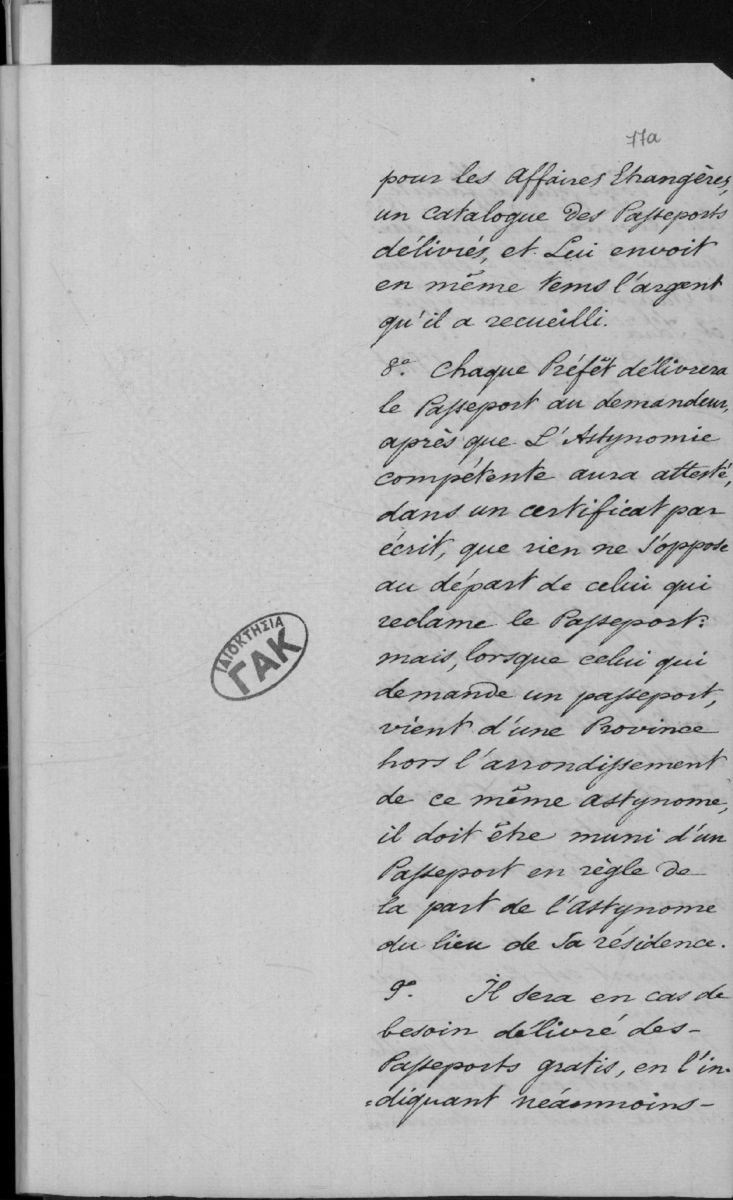 77a
pour les affaires Etrangères,
un catalogue des Passeports
délivrés, et Lui envoit
en même tems l'argent
qu'il a recueilli.
8.° Chaque Préfêt délivrera
le Passeport au demandeur,
après que L'Astynomie
compétente aura attesté,
dans un certificat par
écrit, que rien ne s'oppose
au départ de celui qui
reclame le Passeport:
mais, lorsque celui qui
demande un passeport,
vient d'une Province
hors l'arrondissement
de ce même astynome,
il doit être muni d'un
Passeport en règle de
la part de l'astynome
du lieu de sa résidence.
9.° Il sera en cas de
besoin délivré des-
Passeports gratis, en l'in-
=diquant néanmoins-
ΙΔΙΟΚΤΗΣΙΑ
ΓΑΚ